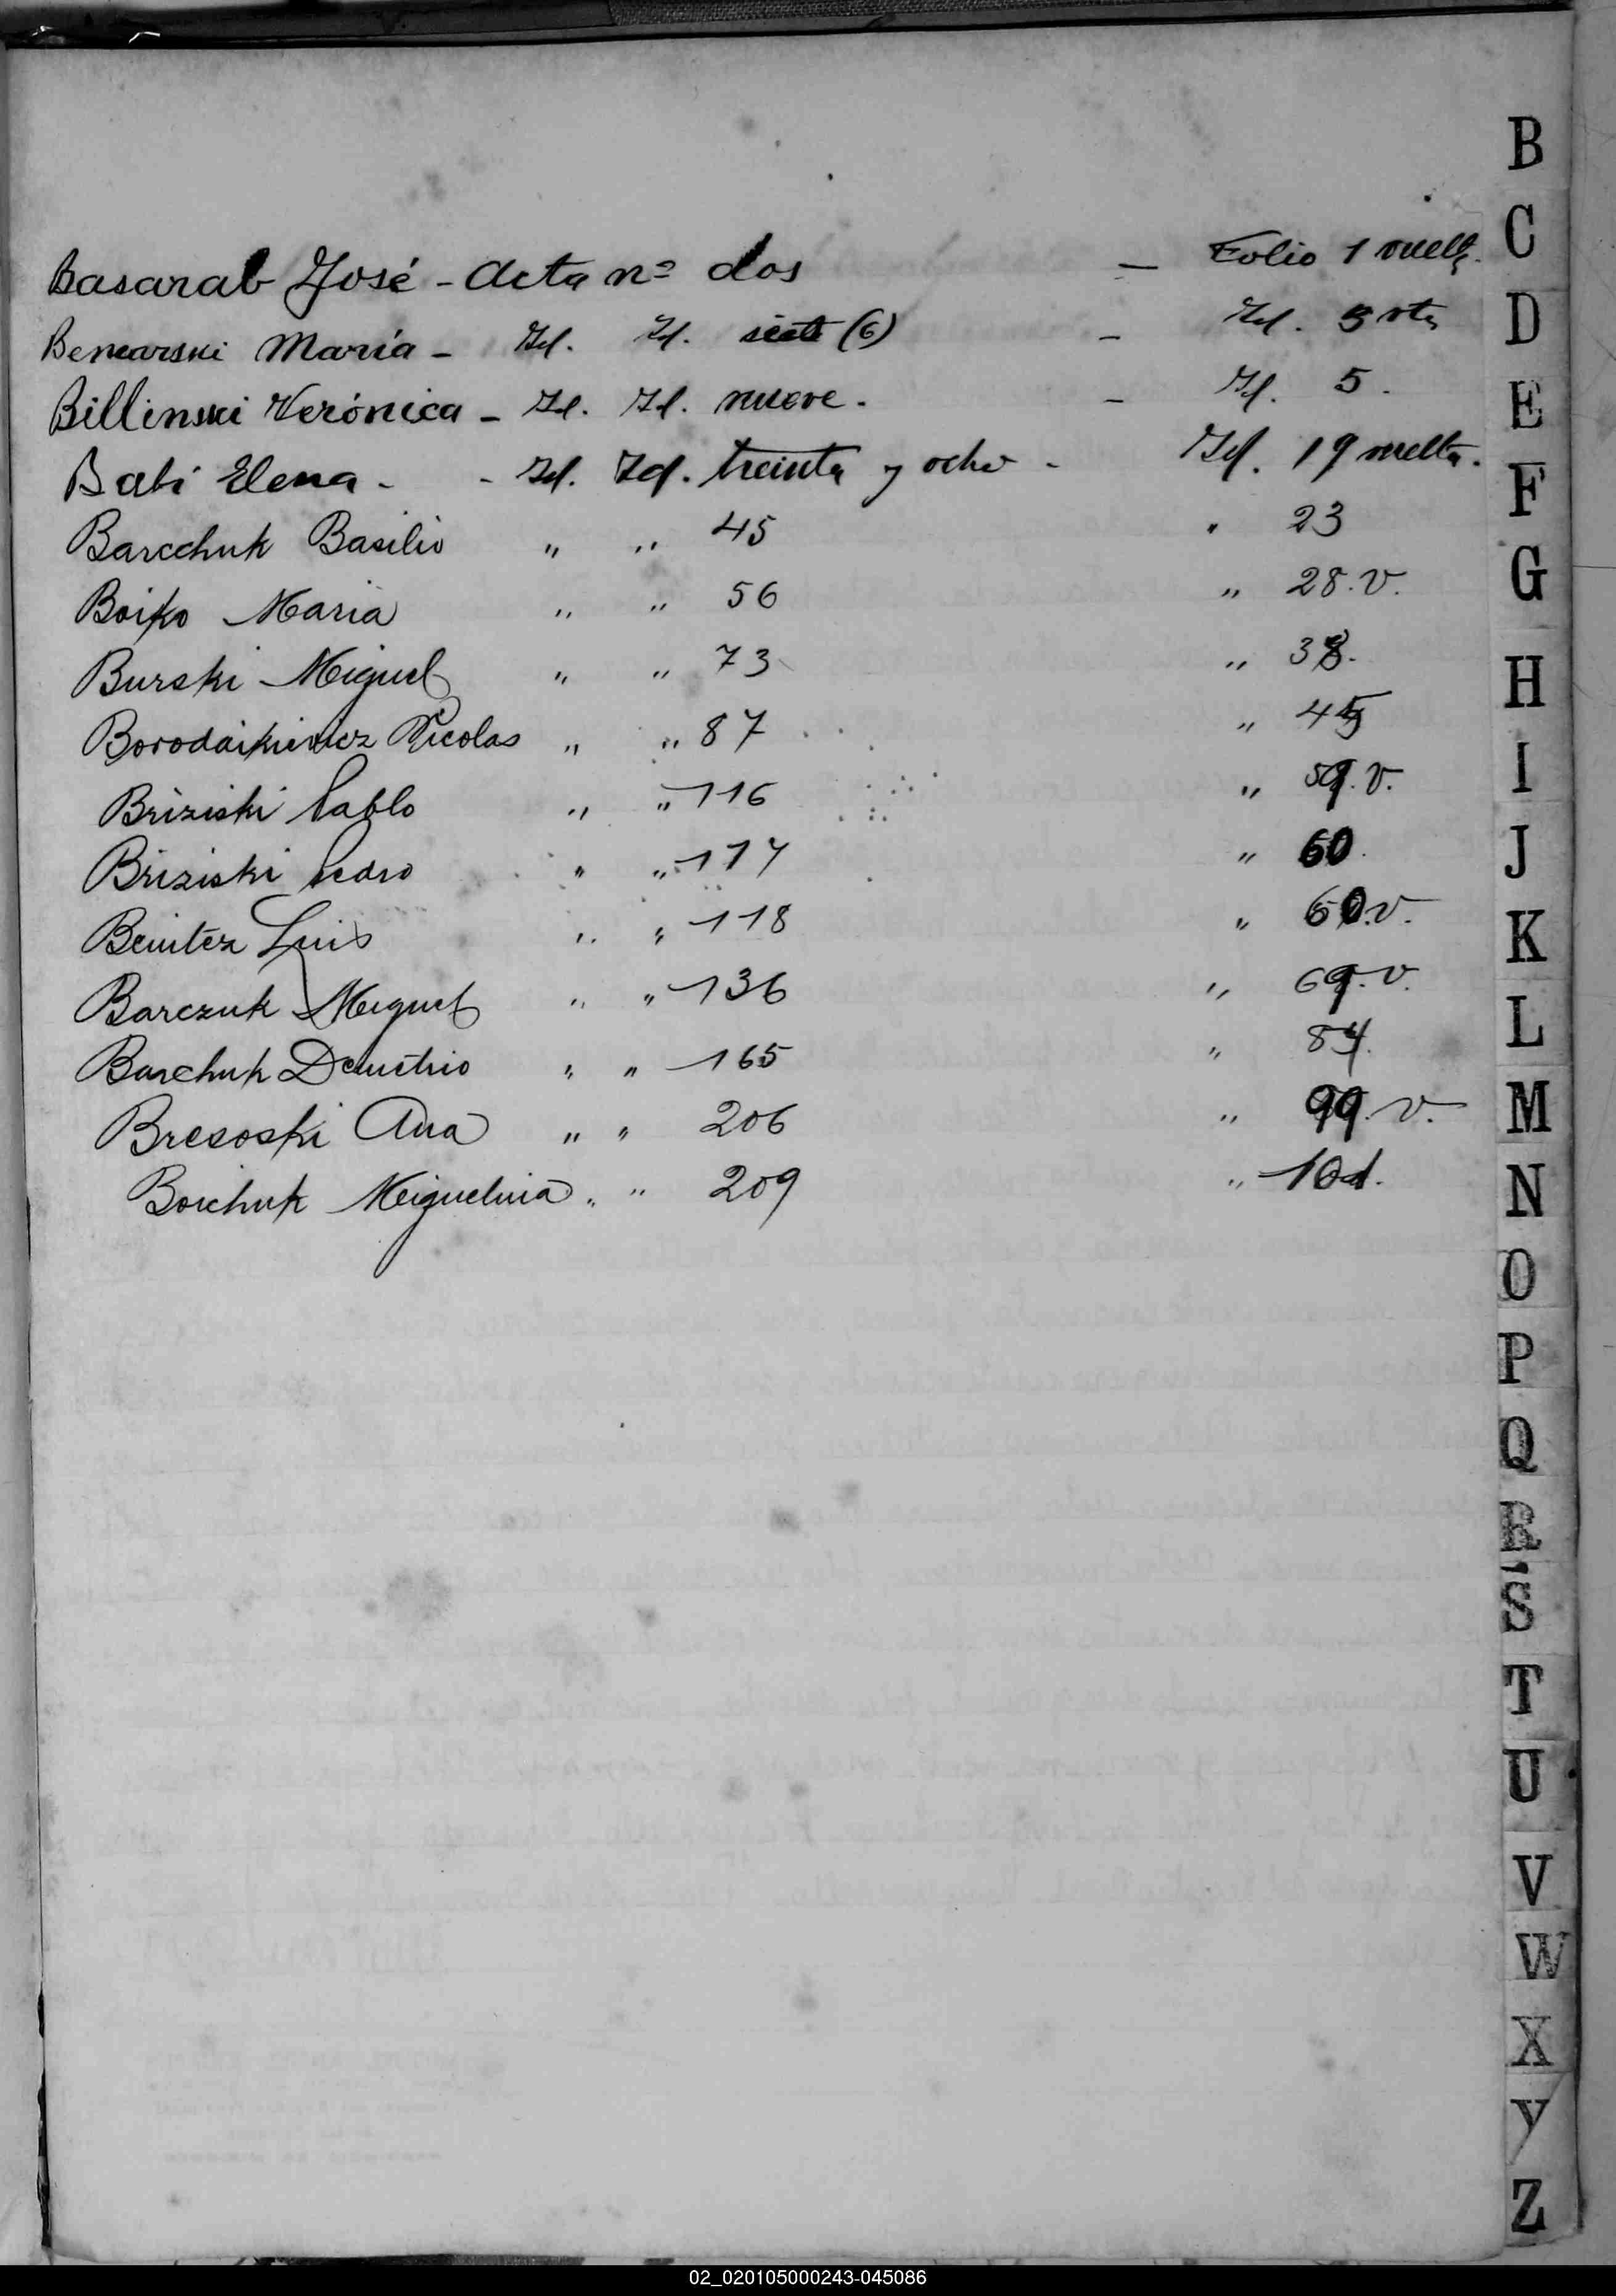 Basarab José - Acta nº dos — Folio 1 vuelta.
Bencarski María - Id. Id. siete (6) - Id. 3 vta
Billinski Verónica - Id. Id. nueve. - Id. 5.
Babi Elena. - Id. Id. treinta y ocho - Id. 19 vuelta.
Barcchuk Basilio " " 45 " 23
Boiko Maria " " 56 " 28.v.
Burski Miguel " " 73 " 38.
Borodaikiewicz Nicolas " " 87 " 45
Briziski Pablo " " 116 " 59.v.
Briziski Pedro " " 117 " 60.
Benitez Luis " " 118 " 60.v.
Barczuk Miguel " " 136 " 69.v.
Barchuk Demetrio " " 165 " 84.
Bresoski Ana " " 206 " 99.v.
Boichuk Miguelina " " 209 " 101.
B
C
D
E
F
G
H
I
J
K
L
M
N
O
P
Q
R
S
T
U
V
W
X
Y
Z
02_020105000243-045086